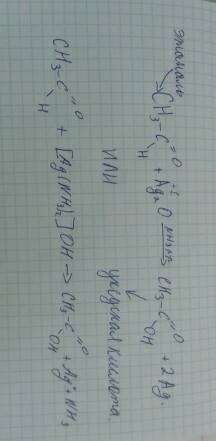 этаналь
CH₃-C=O
H
+ Ag₂⁺¹O → CH₃-C=O
OH
+ 2Ag
или
уксусная кислота
CH₃-C=O
H
+ [Ag(NH₃)₂]OH → CH₃-C=O
OH
+ Ag + NH₃